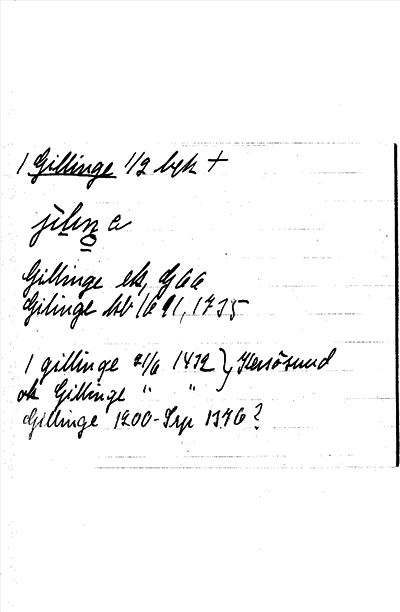 1 Gillinge 1/2 byk +
jilŋ e
Gillinge ek, G 66
Gilinge kb 1691, 1735
1 gillinge 21/6 1432 } Harösund
ok Gillinge " "
Gillinge 1200- 1376?